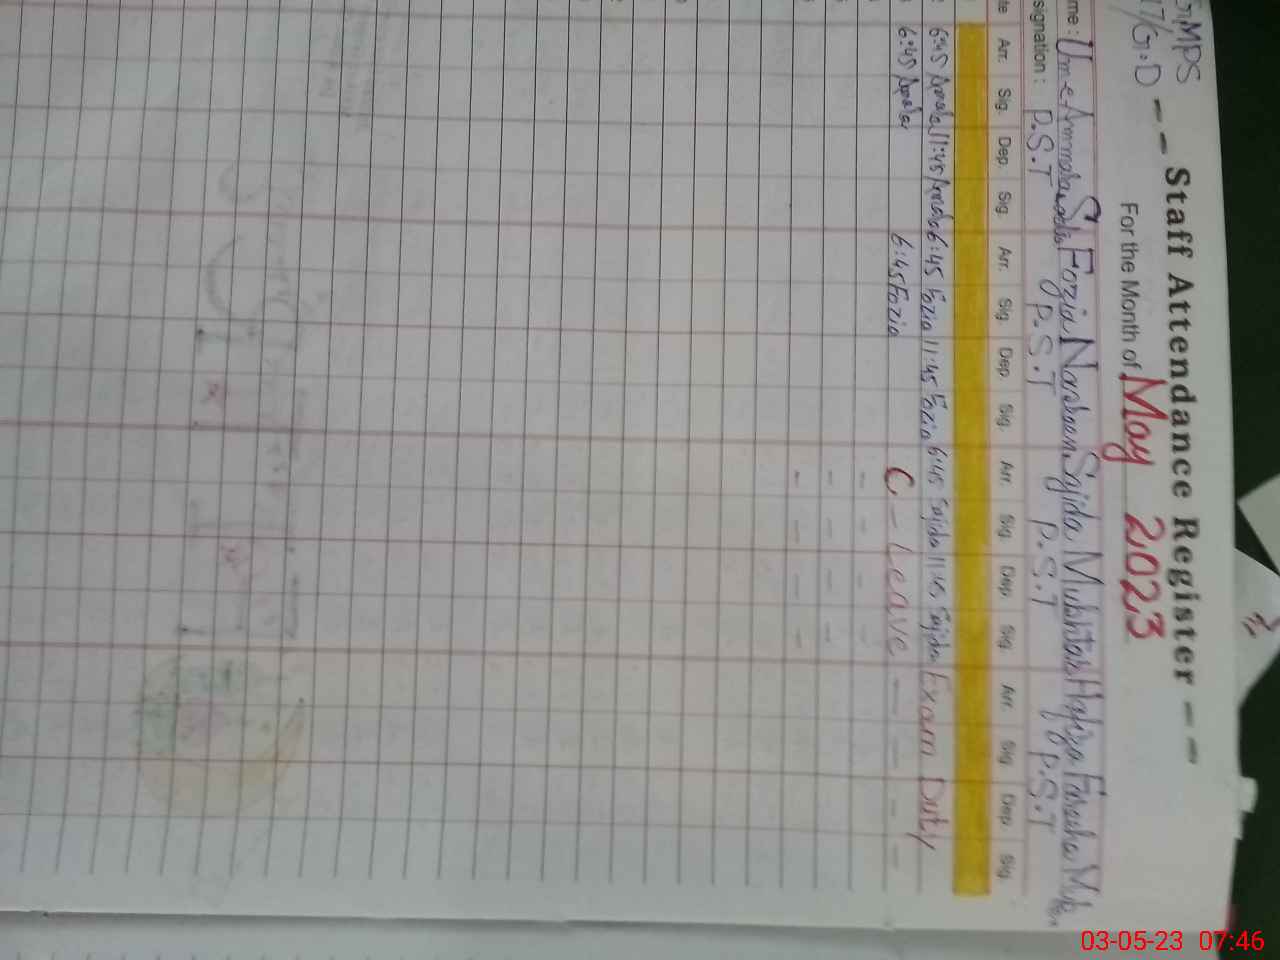 GMPS
17/G.D -- Staff Attendance Register --
For the Month of May 2023
me: Fozia Nasreen Sajida Mukhtar Hafiza
signation: P.S.T P.S.T P.S.T P.S.T
te Arr. Sig. Dep. Sig. Arr. Sig. Dep. Sig. Arr. Sig. Dep. Sig. Arr. Sig. Dep. Sig.
6:45 11:45 6:45 Fozia 11:45 Fozia 6:45 Sajida 11:45 Sajida Exam Duty
6:45 6:45 Fozia C-Leave - - - -
- - - -
- - - -
- - - -
03-05-23 07:46